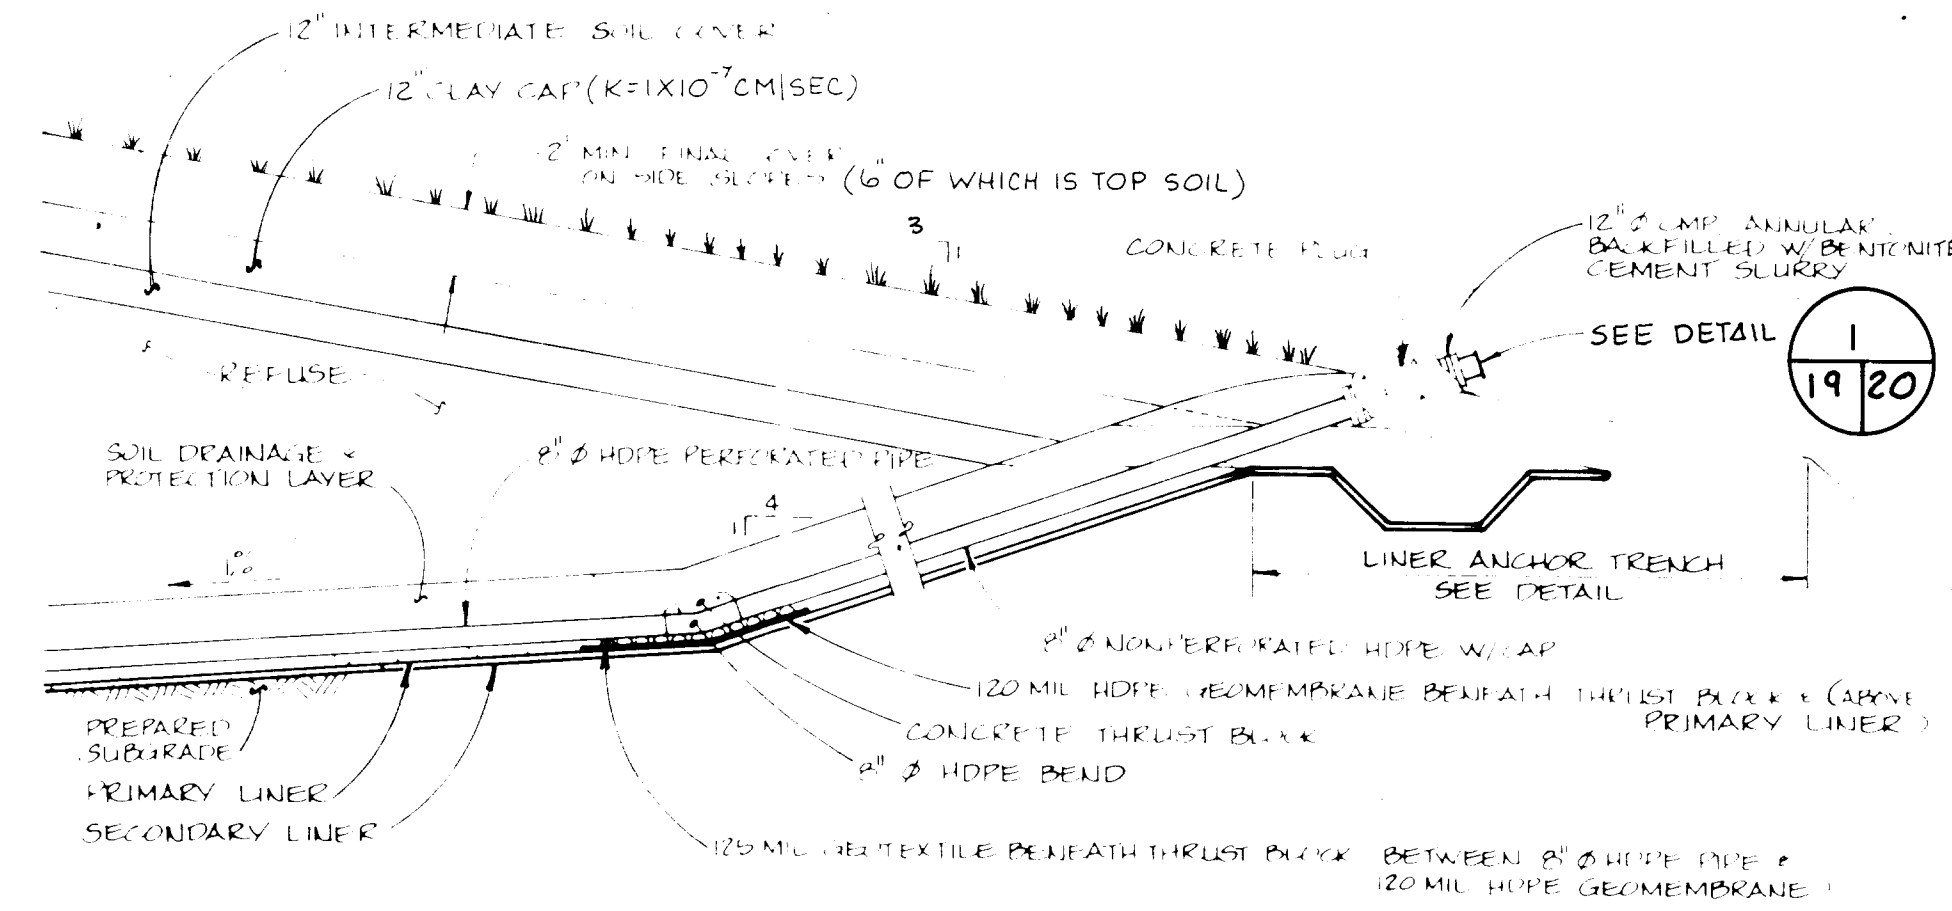 12" INTERMEDIATE SOIL COVER
12" CLAY CAP (K=1X10⁻⁷ CM/SEC)
2' MIN FINAL COVER
ON SIDE SLOPES (6" OF WHICH IS TOP SOIL)
3
1
CONCRETE PLUG
12" Ø CMP ANNULAR
BACKFILLED W/ BENTONITE
CEMENT SLURRY
SEE DETAIL
1
19 20
REFUSE
SOIL DRAINAGE &
PROTECTION LAYER
8" Ø HDPE PERFORATED PIPE
4
1
1%
LINER ANCHOR TRENCH
SEE DETAIL
8" Ø NONPERFORATED HDPE W/CAP
120 MIL HDPE GEOMEMBRANE BENEATH THRUST BLOCK & (ABOVE
PRIMARY LINER)
CONCRETE THRUST BLOCK
8" Ø HDPE BEND
PREPARED
SUBGRADE
PRIMARY LINER
SECONDARY LINER
125 MIL GEOTEXTILE BENEATH THRUST BLOCK BETWEEN 8" Ø HDPE PIPE &
120 MIL HDPE GEOMEMBRANE )